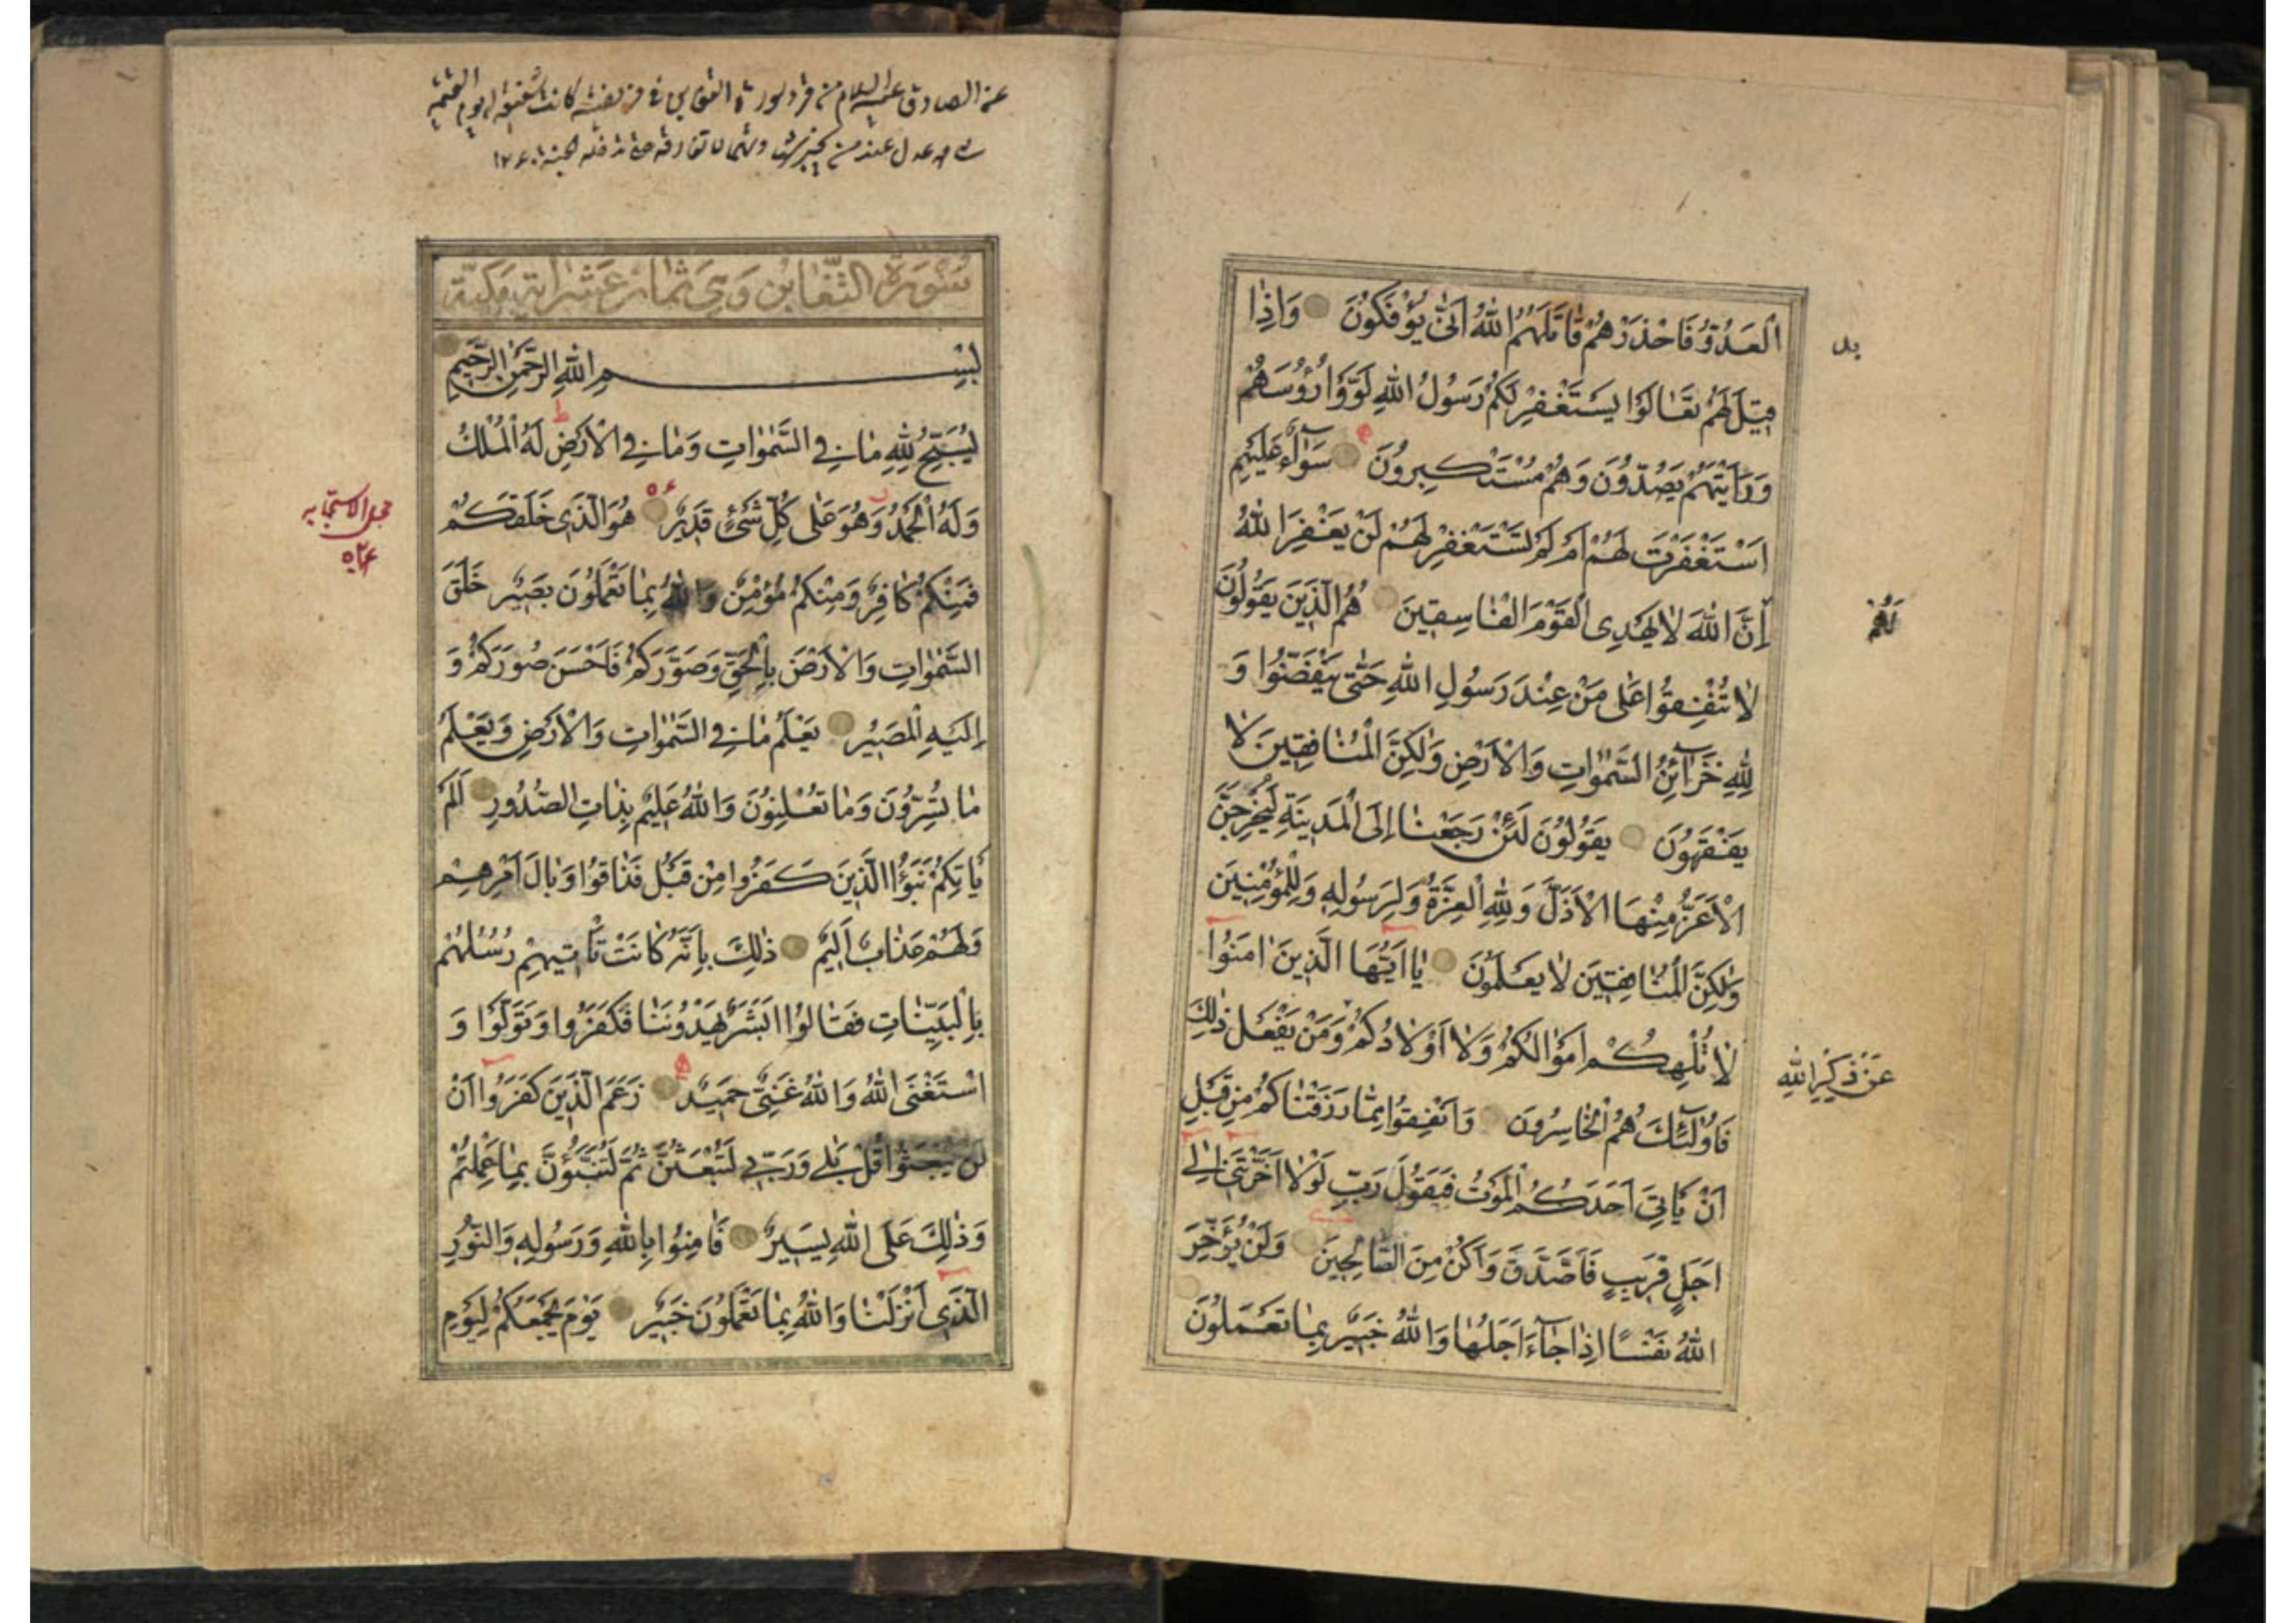 الْعَدُوُّ فَاحْذَرْهُمْ قَاتَلَهُمُ اللّٰهُ اَنّٰى يُؤْفَكُونَ وَاِذَا
قِيلَ لَهُمْ تَعَالَوْا يَسْتَغْفِرْ لَكُمْ رَسُولُ اللّٰهِ لَوَّوْا رُؤُسَهُمْ
وَرَاَيْتَهُمْ يَصُدُّونَ وَهُمْ مُسْتَكْبِرُونَ سَوَآءٌ عَلَيْهِمْ
اَسْتَغْفَرْتَ لَهُمْ اَمْ لَمْ تَسْتَغْفِرْ لَهُمْ لَنْ يَغْفِرَ اللّٰهُ
لَهُمْ
اِنَّ اللّٰهَ لَا يَهْدِى الْقَوْمَ الْفَاسِقِينَ هُمُ الَّذِينَ يَقُولُونَ
لَا تُنْفِقُوا عَلٰى مَنْ عِنْدَ رَسُولِ اللّٰهِ حَتّٰى يَنْفَضُّوا وَ
لِلّٰهِ خَزَآئِنُ السَّمٰوَاتِ وَالْاَرْضِ وَلٰكِنَّ الْمُنَافِقِينَ لَا
يَفْقَهُونَ يَقُولُونَ لَئِنْ رَجَعْنَا اِلَى الْمَدِينَةِ لَيُخْرِجَنَّ
الْاَعَزُّ مِنْهَا الْاَذَلَّ وَلِلّٰهِ الْعِزَّةُ وَلِرَسُولِهِ وَلِلْمُؤْمِنِينَ
وَلٰكِنَّ الْمُنَافِقِينَ لَا يَعْلَمُونَ يَا اَيُّهَا الَّذِينَ اٰمَنُوا
لَا تُلْهِكُمْ اَمْوَالُكُمْ وَلَا اَوْلَادُكُمْ وَمَنْ يَفْعَلْ ذٰلِكَ
عَنْ ذِكْرِ اللّٰهِ
فَاُولٰٓئِكَ هُمُ الْخَاسِرُونَ وَاَنْفِقُوا مِمَّا رَزَقْنَاكُمْ مِنْ قَبْلِ
اَنْ يَاْتِىَ اَحَدَكُمُ الْمَوْتُ فَيَقُولَ رَبِّ لَوْلَا اَخَّرْتَنِى اِلٰى
اَجَلٍ قَرِيبٍ فَاَصَّدَّقَ وَاَكُنْ مِنَ الصَّالِحِينَ وَلَنْ يُؤَخِّرَ
اللّٰهُ نَفْسًا اِذَا جَآءَ اَجَلُهَا وَاللّٰهُ خَبِيرٌ بِمَا تَعْمَلُونَ
عن الصادق عليه السلام من قرء سورة التغابن فى فريضته كانت شفيعة له يوم القيمة
سُورَةُ التَّغَابُنِ وَهِيَ ثَمَان عَشَرَ اٰيَة مَكِّيَّة
بِسْمِ اللّٰهِ الرَّحْمٰنِ الرَّحِيمِ
يُسَبِّحُ لِلّٰهِ مَا فِى السَّمٰوَاتِ وَمَا فِى الْاَرْضِ لَهُ الْمُلْكُ
وَلَهُ الْحَمْدُ وَهُوَ عَلٰى كُلِّ شَىْءٍ قَدِيرٌ هُوَ الَّذِى خَلَقَكُمْ
فَمِنْكُمْ كَافِرٌ وَمِنْكُمْ مُؤْمِنٌ وَاللّٰهُ بِمَا تَعْمَلُونَ بَصِيرٌ خَلَقَ
السَّمٰوَاتِ وَالْاَرْضَ بِالْحَقِّ وَصَوَّرَكُمْ فَاَحْسَنَ صُوَرَكُمْ وَ
اِلَيْهِ الْمَصِيرُ يَعْلَمُ مَا فِى السَّمٰوَاتِ وَالْاَرْضِ وَيَعْلَمُ
مَا تُسِرُّونَ وَمَا تُعْلِنُونَ وَاللّٰهُ عَلِيمٌ بِذَاتِ الصُّدُورِ اَلَمْ
يَاْتِكُمْ نَبَؤُا الَّذِينَ كَفَرُوا مِنْ قَبْلُ فَذَاقُوا وَبَالَ اَمْرِهِمْ
وَلَهُمْ عَذَابٌ اَلِيمٌ ذٰلِكَ بِاَنَّهُ كَانَتْ تَاْتِيهِمْ رُسُلُهُمْ
بِالْبَيِّنَاتِ فَقَالُوا اَبَشَرٌ يَهْدُونَنَا فَكَفَرُوا وَتَوَلَّوْا وَ
اسْتَغْنَى اللّٰهُ وَاللّٰهُ غَنِىٌّ حَمِيدٌ زَعَمَ الَّذِينَ كَفَرُوا اَنْ
لَنْ يُبْعَثُوا قُلْ بَلٰى وَرَبِّى لَتُبْعَثُنَّ ثُمَّ لَتُنَبَّؤُنَّ بِمَا عَمِلْتُمْ
وَذٰلِكَ عَلَى اللّٰهِ يَسِيرٌ فَاٰمِنُوا بِاللّٰهِ وَرَسُولِهِ وَالنُّورِ
الَّذِى اَنْزَلْنَا وَاللّٰهُ بِمَا تَعْمَلُونَ خَبِيرٌ يَوْمَ يَجْمَعُكُمْ لِيَوْمِ